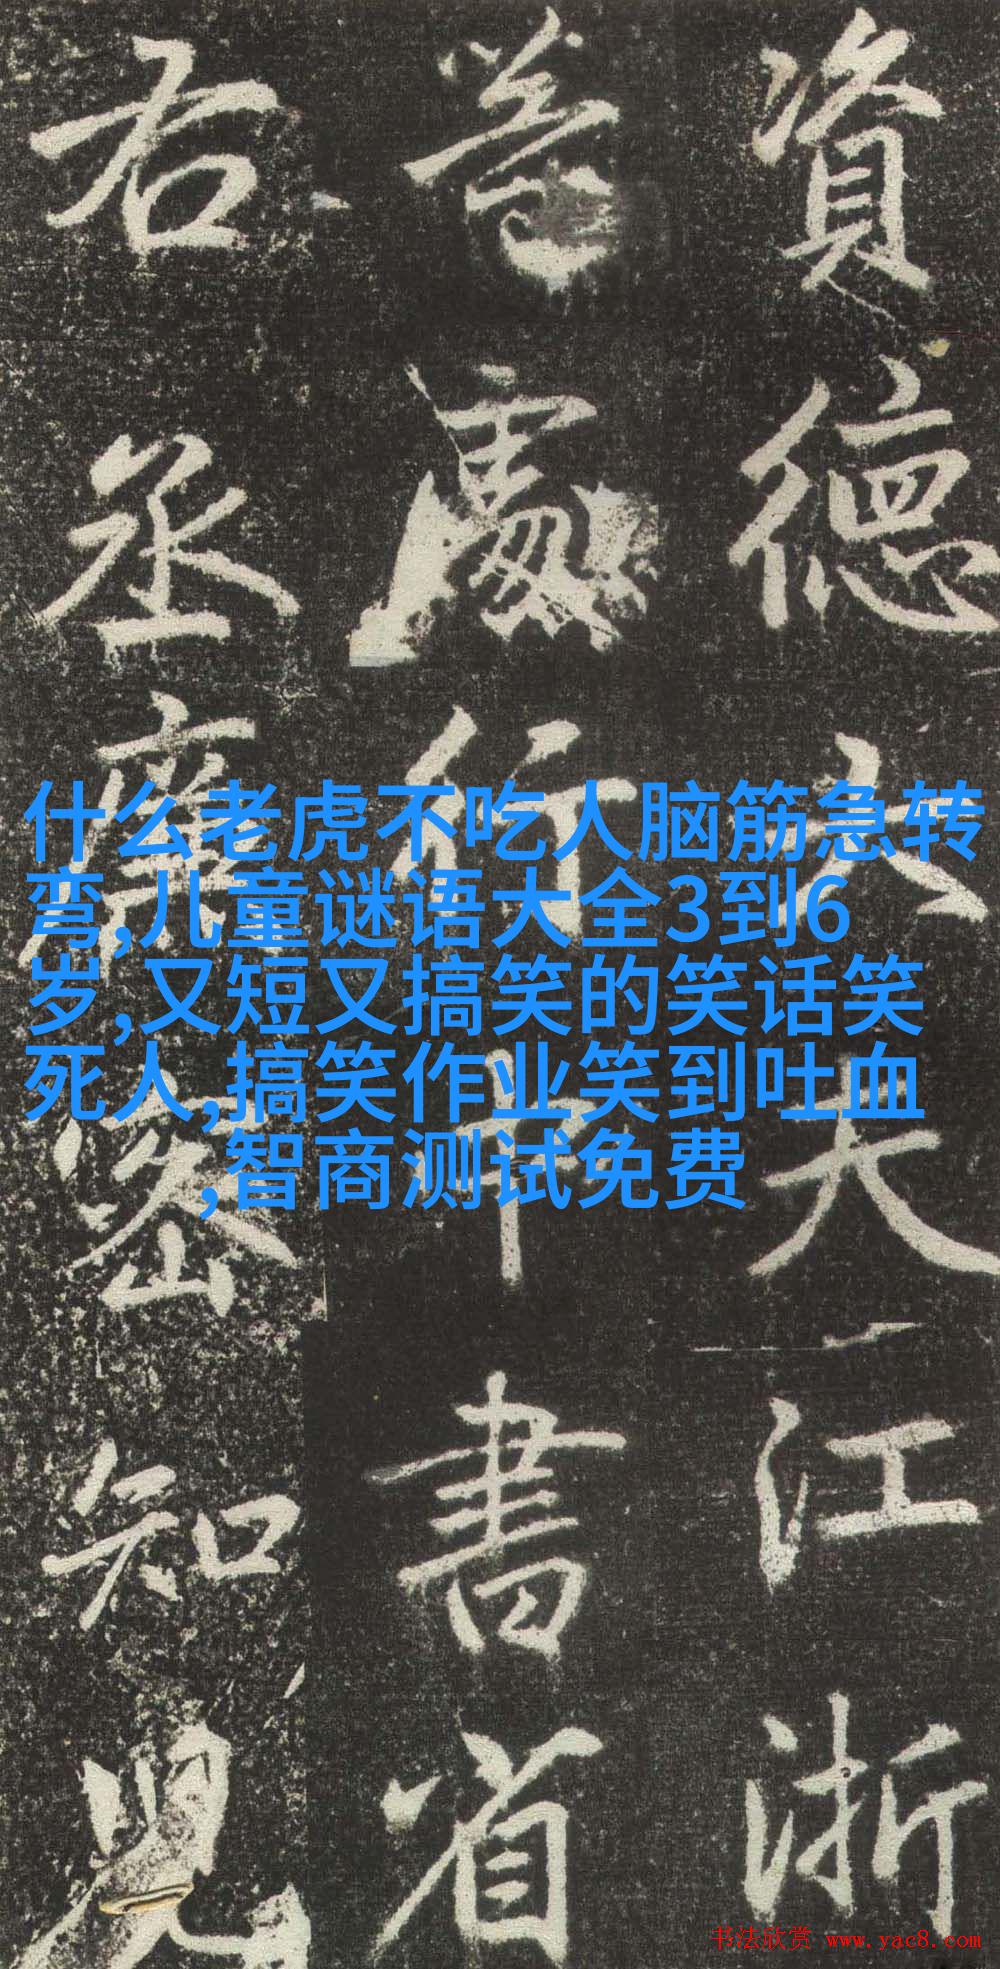 資德大夫江浙
等處行中書省
右丞齊密知兒
什么老虎不吃人脑筋急转
弯,儿童谜语大全3到6
岁,又短又搞笑的笑话笑
死人,搞笑作业笑到吐血
,智商测试免费
书法欣赏 www.yac8.com